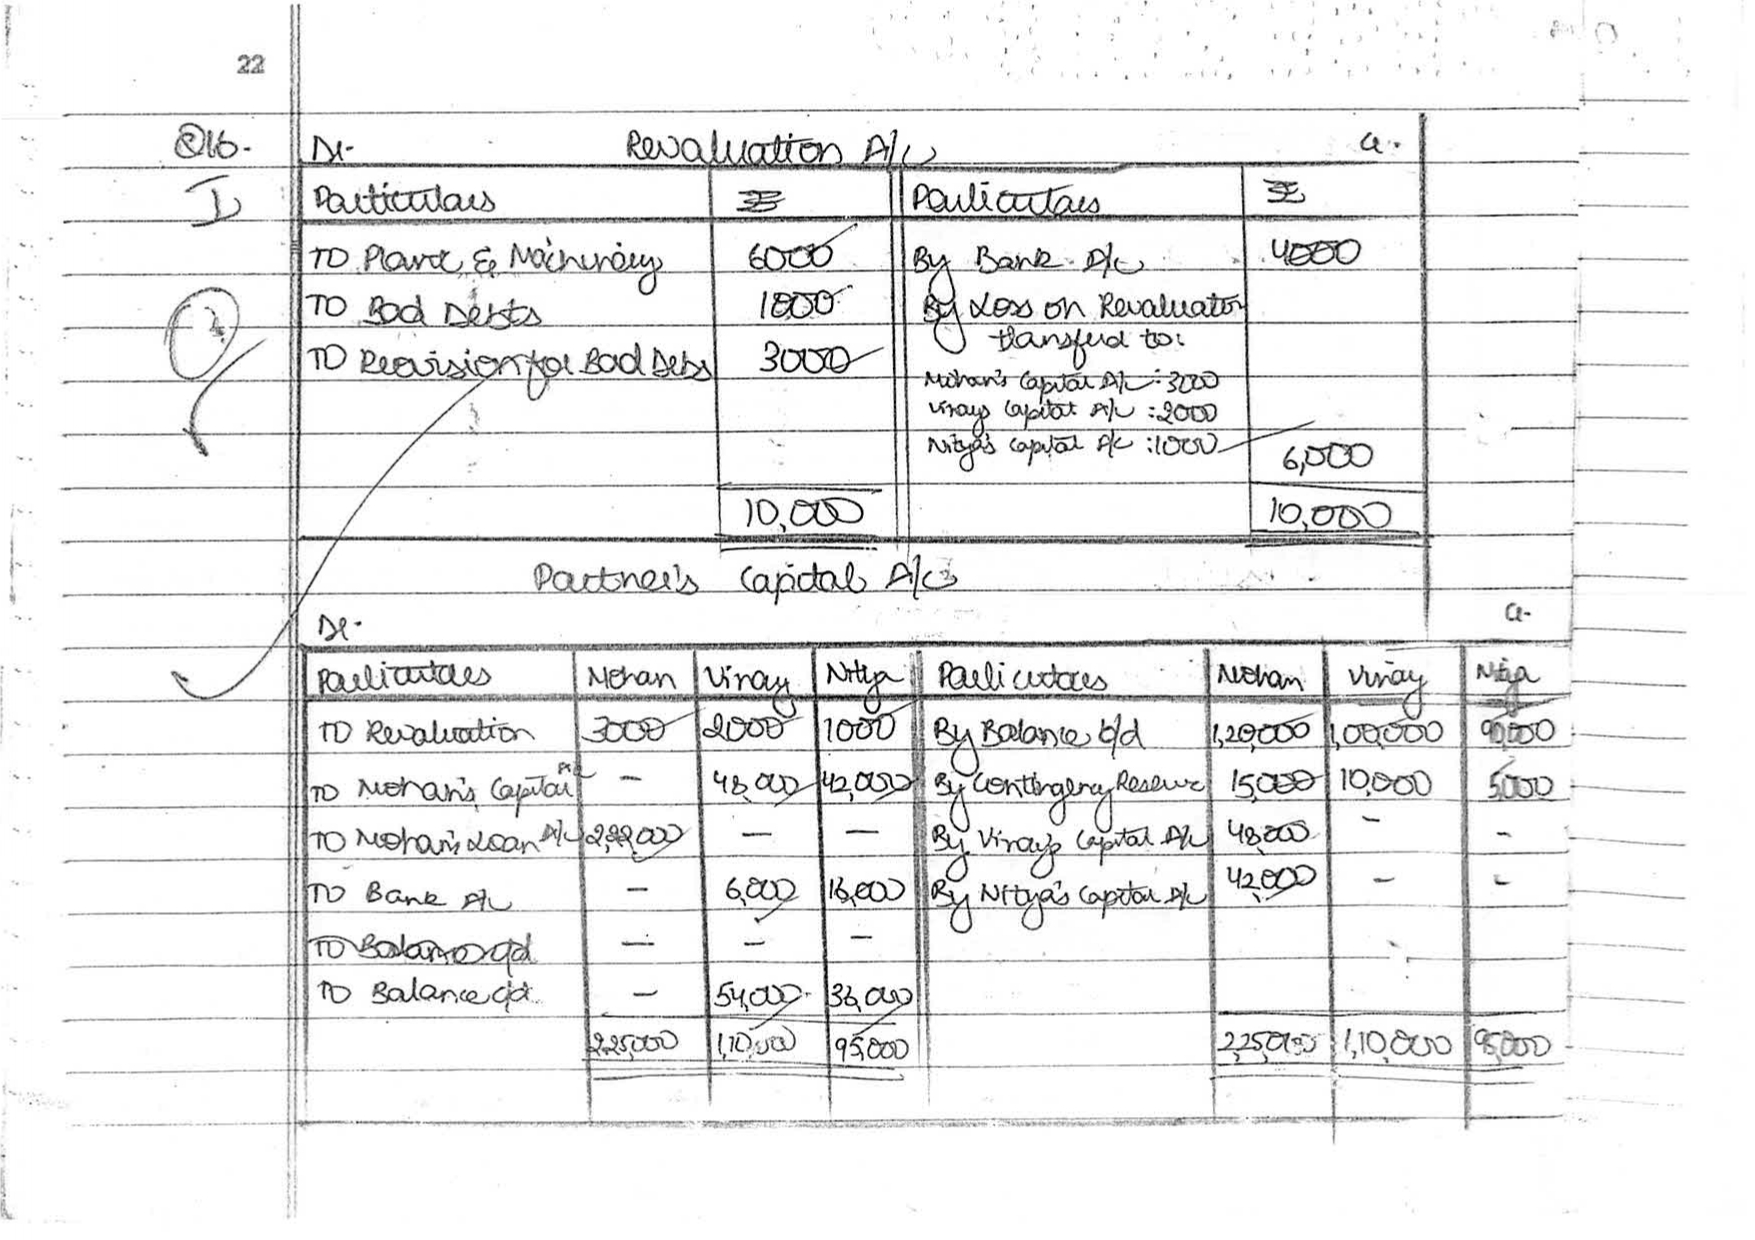 22
Q16. Dr. Revaluation A/c Cr.
I Particulars ₹ Particulars ₹
TO Plant & Machinery 6000 By Bank A/c 4000
TO Bad Debts 1000 By Loss on Revaluation
transferd to:
TO Provision for Bad Debts 3000
Mohan's Capital A/c : 3000
Vinay's Capital A/c : 2000
Nitya's Capital A/c : 1000 6,000
10,000 10,000
Partner's Capital A/c
Dr. Cr.
Particulars Mohan Vinay Nitya Particulars Mohan Vinay Nitya
TO Revaluation 3000 2000 1000 By Balance b/d 1,20,000 1,00,000 90,000
TO Mohan's Capital A/c – 48,000 42,000 By Contingency Reserve 15,000 10,000 5000
TO Mohan's Loan A/c 2,22,000 – – By Vinay's Capital A/c 48,000 – -
TO Bank A/c – 6,000 16,000 By Nitya's Capital A/c 42,000 – -
TO Balance c/d – – –
TO Balance c/d – 54,000 36,000
2,25,000 1,10,000 95,000 2,25,000 1,10,000 95,000